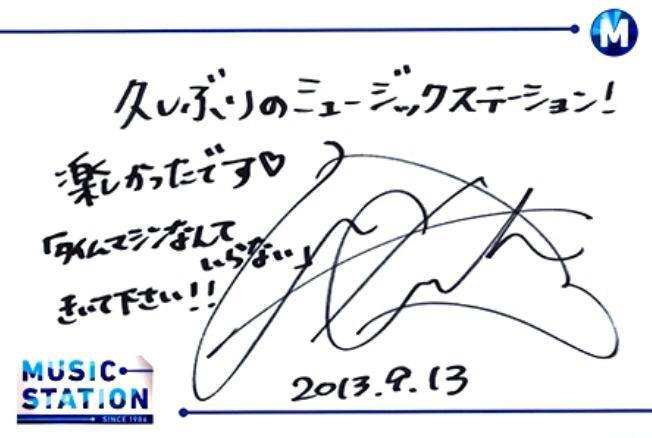 M
久しぶりのミュージックステーション!
楽しかったです♡
「タイムマシンなんて
いらない」
きいて下さい!!
2013.9.13
MUSIC
STATION
SINCE 1986